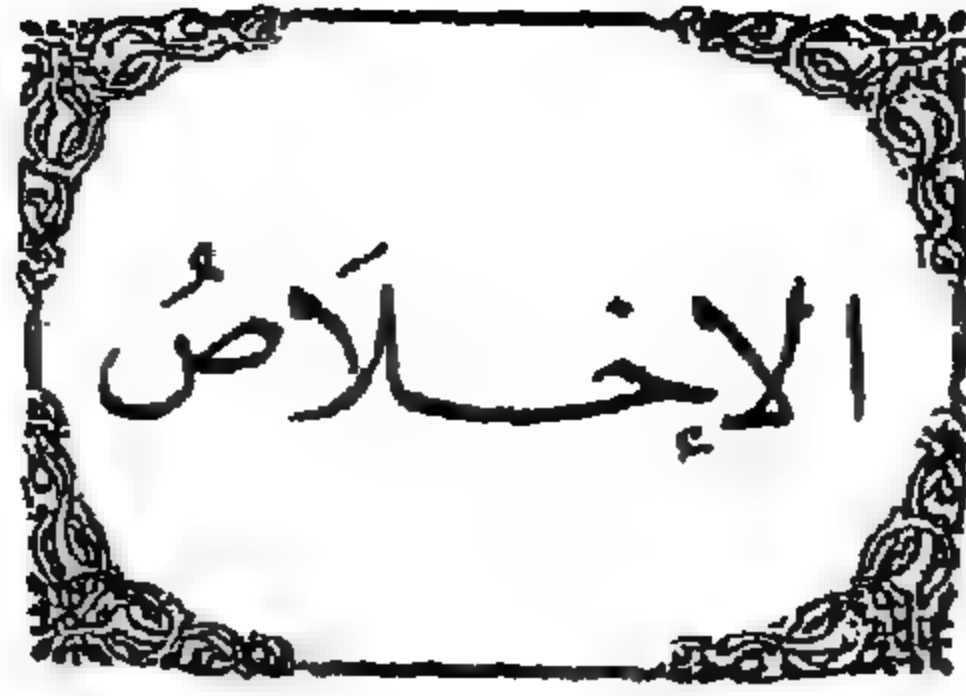 الإخلاَصُ